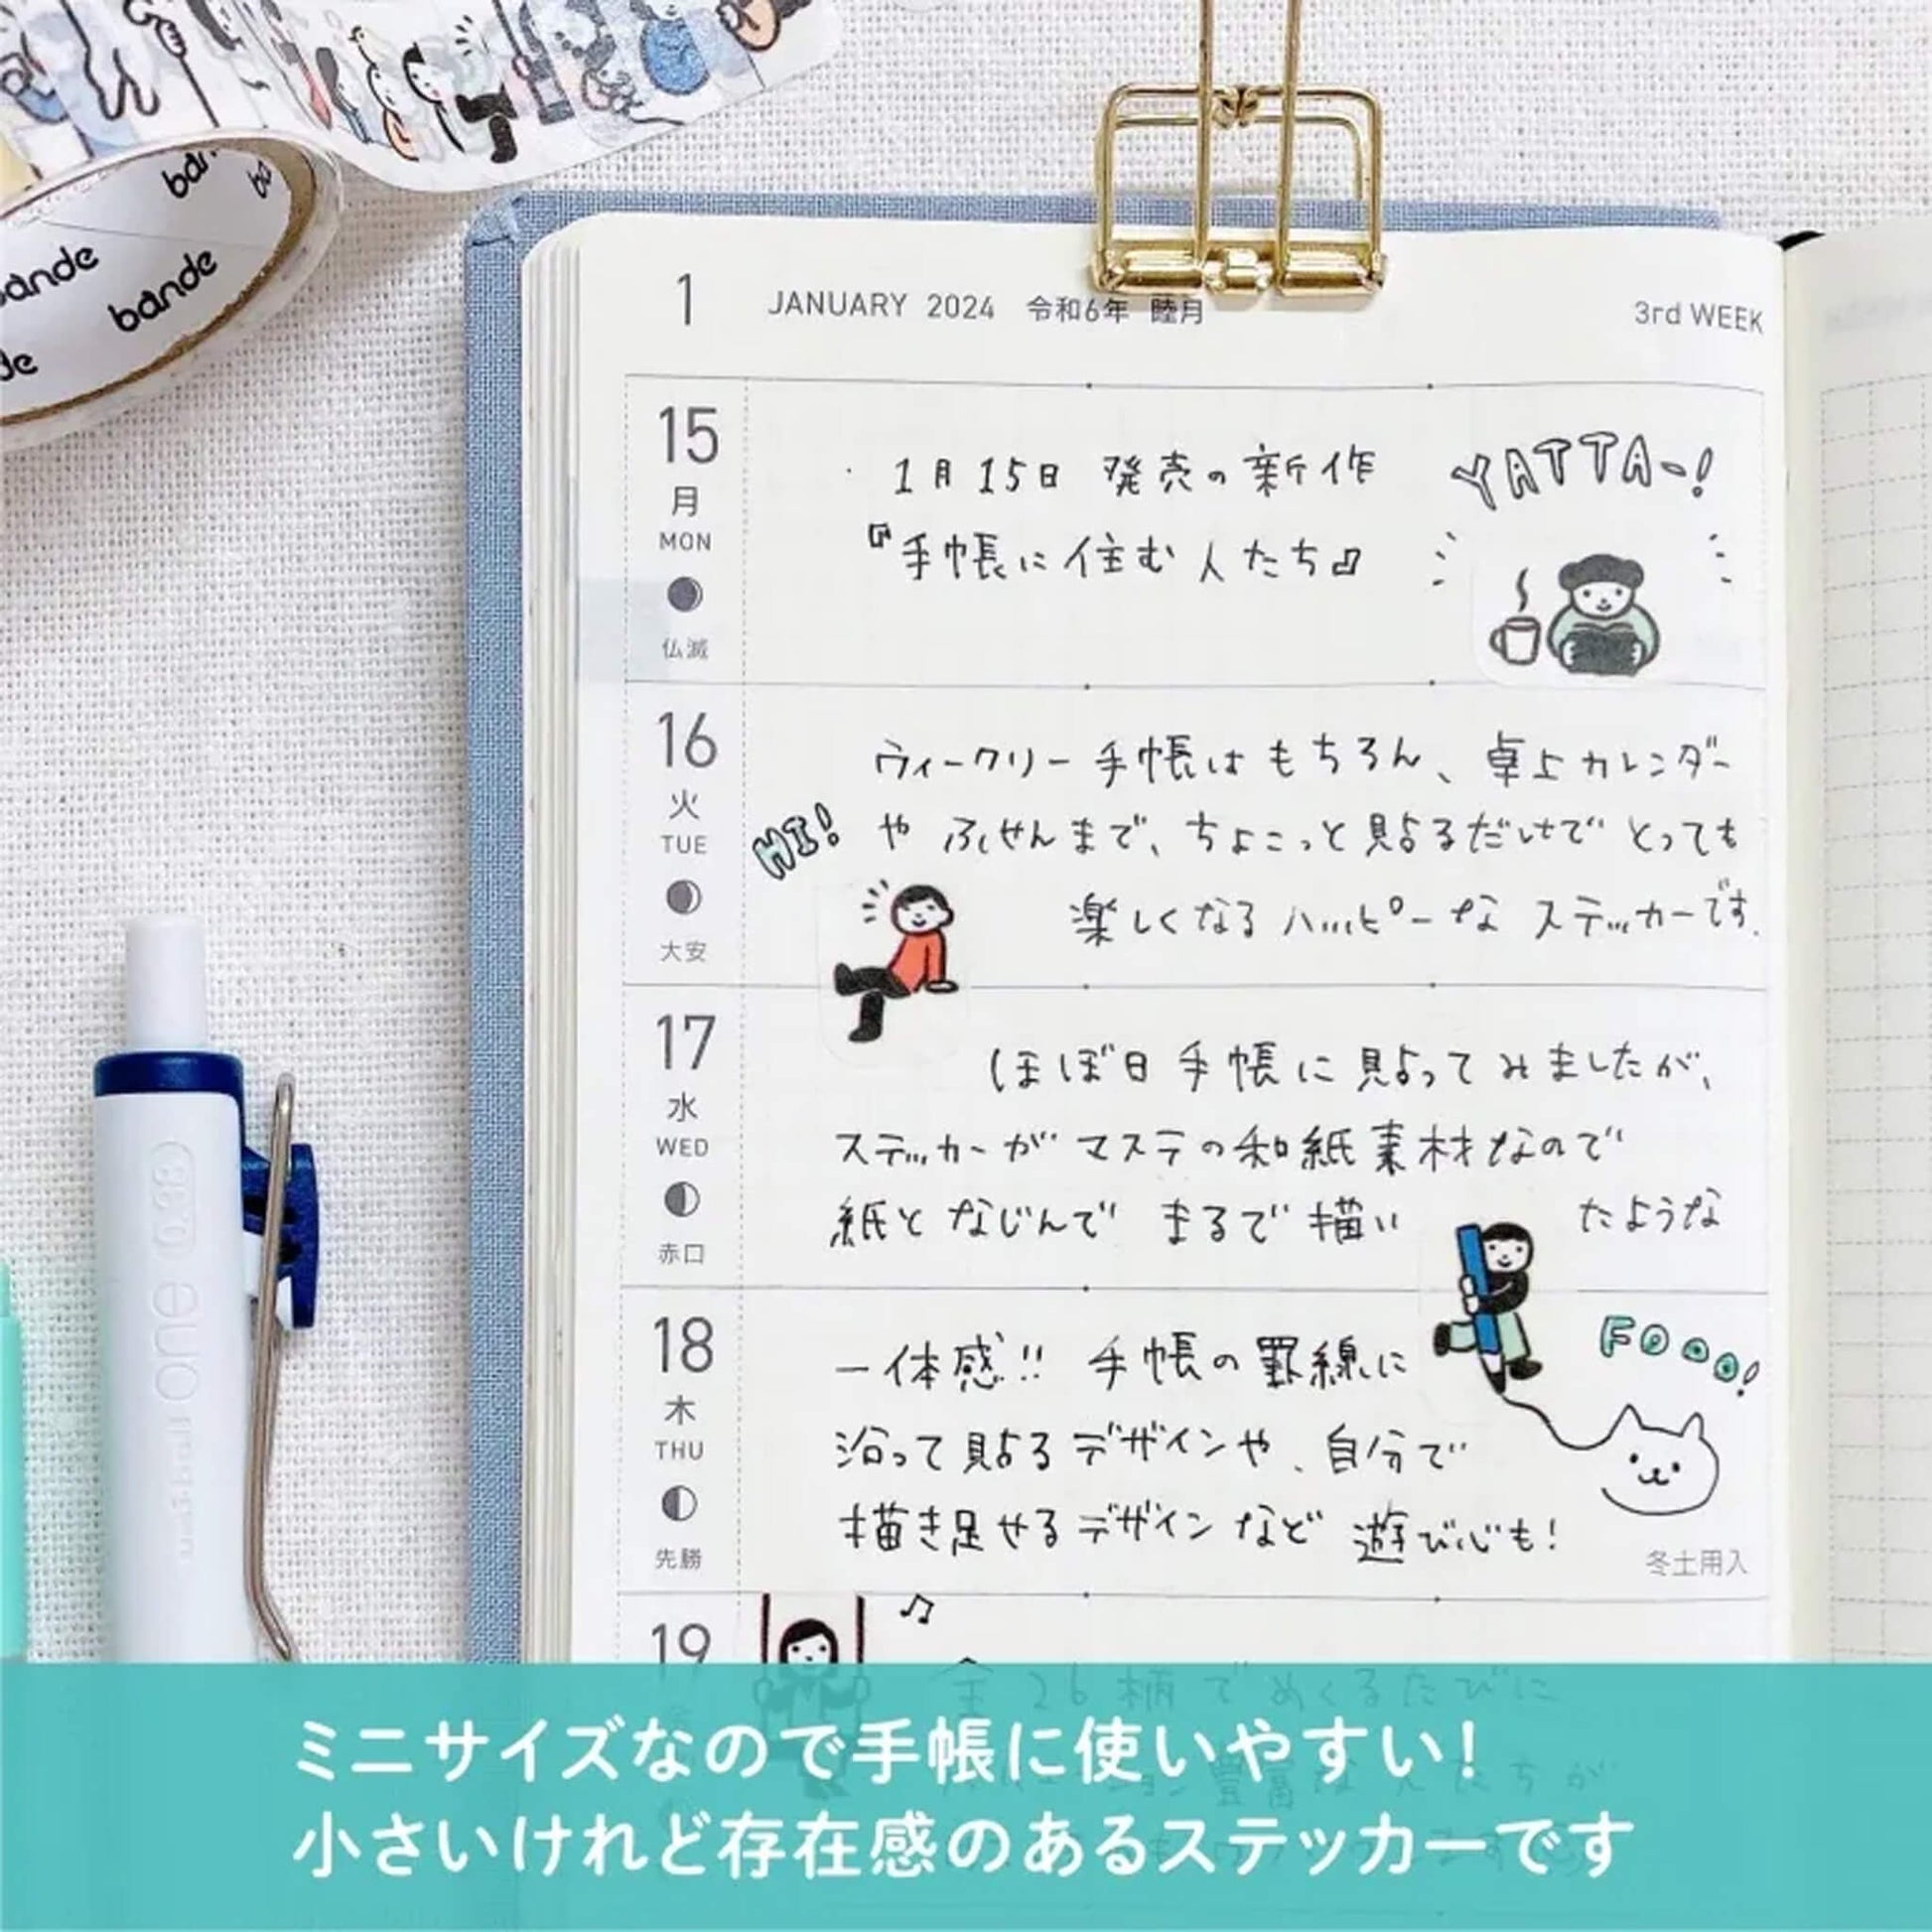 bande
bande
1 JANUARY 2024 令和6年 睦月 3rd WEEK
15
月
MON
仏滅
1月15日 発売の新作
『手帳に住む人たち』
YATTA~!
16
火
TUE
大安
ウィークリー手帳はもちろん、卓上カレンダー
や ふせんまで、ちょこっと貼るだけで とっても
楽しくなるハッピーな ステッカーです.
HI!
17
水
WED
赤口
ほぼ日手帳に貼ってみましたが、
ステッカーが マステの和紙素材なので
紙となじんで まるで描い たような
18
木
THU
先勝
一体感!! 手帳の罫線に
沿って貼るデザインや、自分で
描き足せるデザインなど 遊び心も!
FOOO!
冬土用入
19
全26柄でめくるたびに
豊富な人たちが
one 0.38
ミニサイズなので手帳に使いやすい!
小さいけれど存在感のあるステッカーです